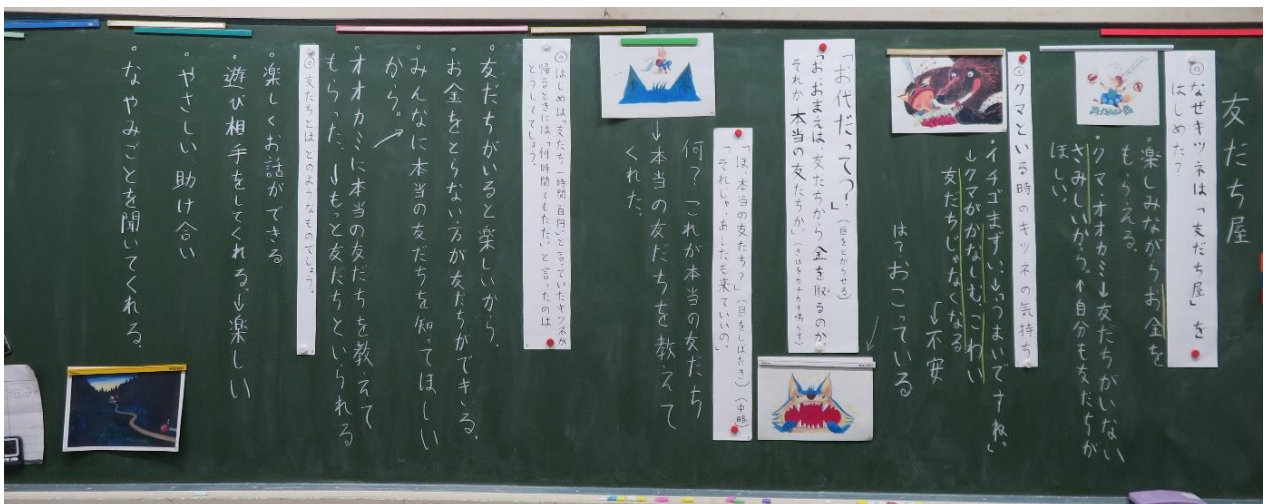 友だち屋
◎なぜキツネは「友だち屋」を
はじめた？
楽しみながらお金を
もらえる。
・クマ、オオカミ→友だちがいない
さみしいから。↑自分も友だちが
ほしい。
◎クマといる時のキツネの気持ち
・イチゴまずい、→「うまいですね」
↓クマがかなしむ、こわい
友だちじゃなくなる
↓不安
は？おこっている
「お代だって？」（目をとがらせる）
「お、おまえは、友だちから金を取るのか
それが本当の友だちか」（きばをカチカチ鳴らす）
「ほ、本当の友だち？」（目をしばたき）（中略）
「それじゃ、あしたも来ていいの。」
何？これが本当の友だち
↓本当の友だちを教えて
くれた。
◎はじめは「友だち一時間百円」と言っていたキツネが
帰るときには「何時間でもただ」と言ったのは
どうしてでしょう。
友だちがいると楽しいから。
・お金をとらない方が友だちができる。
・みんなに本当の友だちを知ってほしい
から。
・オオカミに本当の友だちを教えて
もらった、→もっと友だちといられる
◎友だちとはどのようなものでしょう。
楽しくお話ができる
・遊び相手をしてくれる、→楽しい
・やさしい、助け合い
・なやみごとを聞いてくれる。